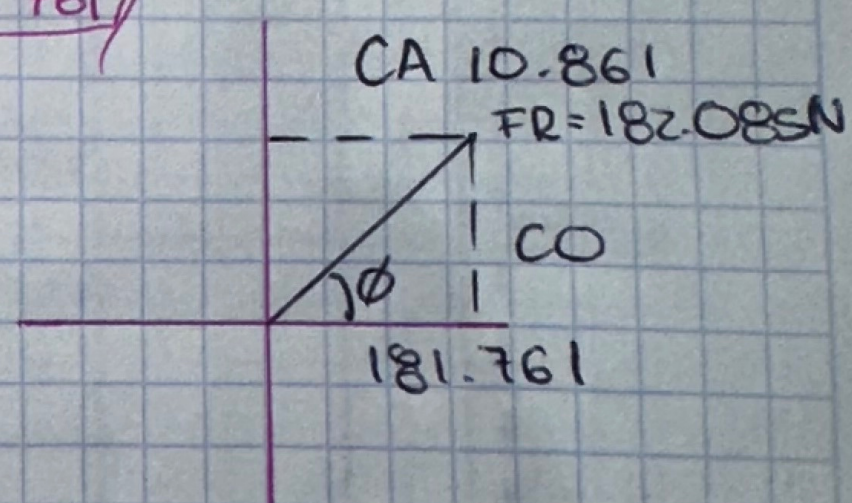 CA 10.861
FR=182.085N
CO
φ
181.761